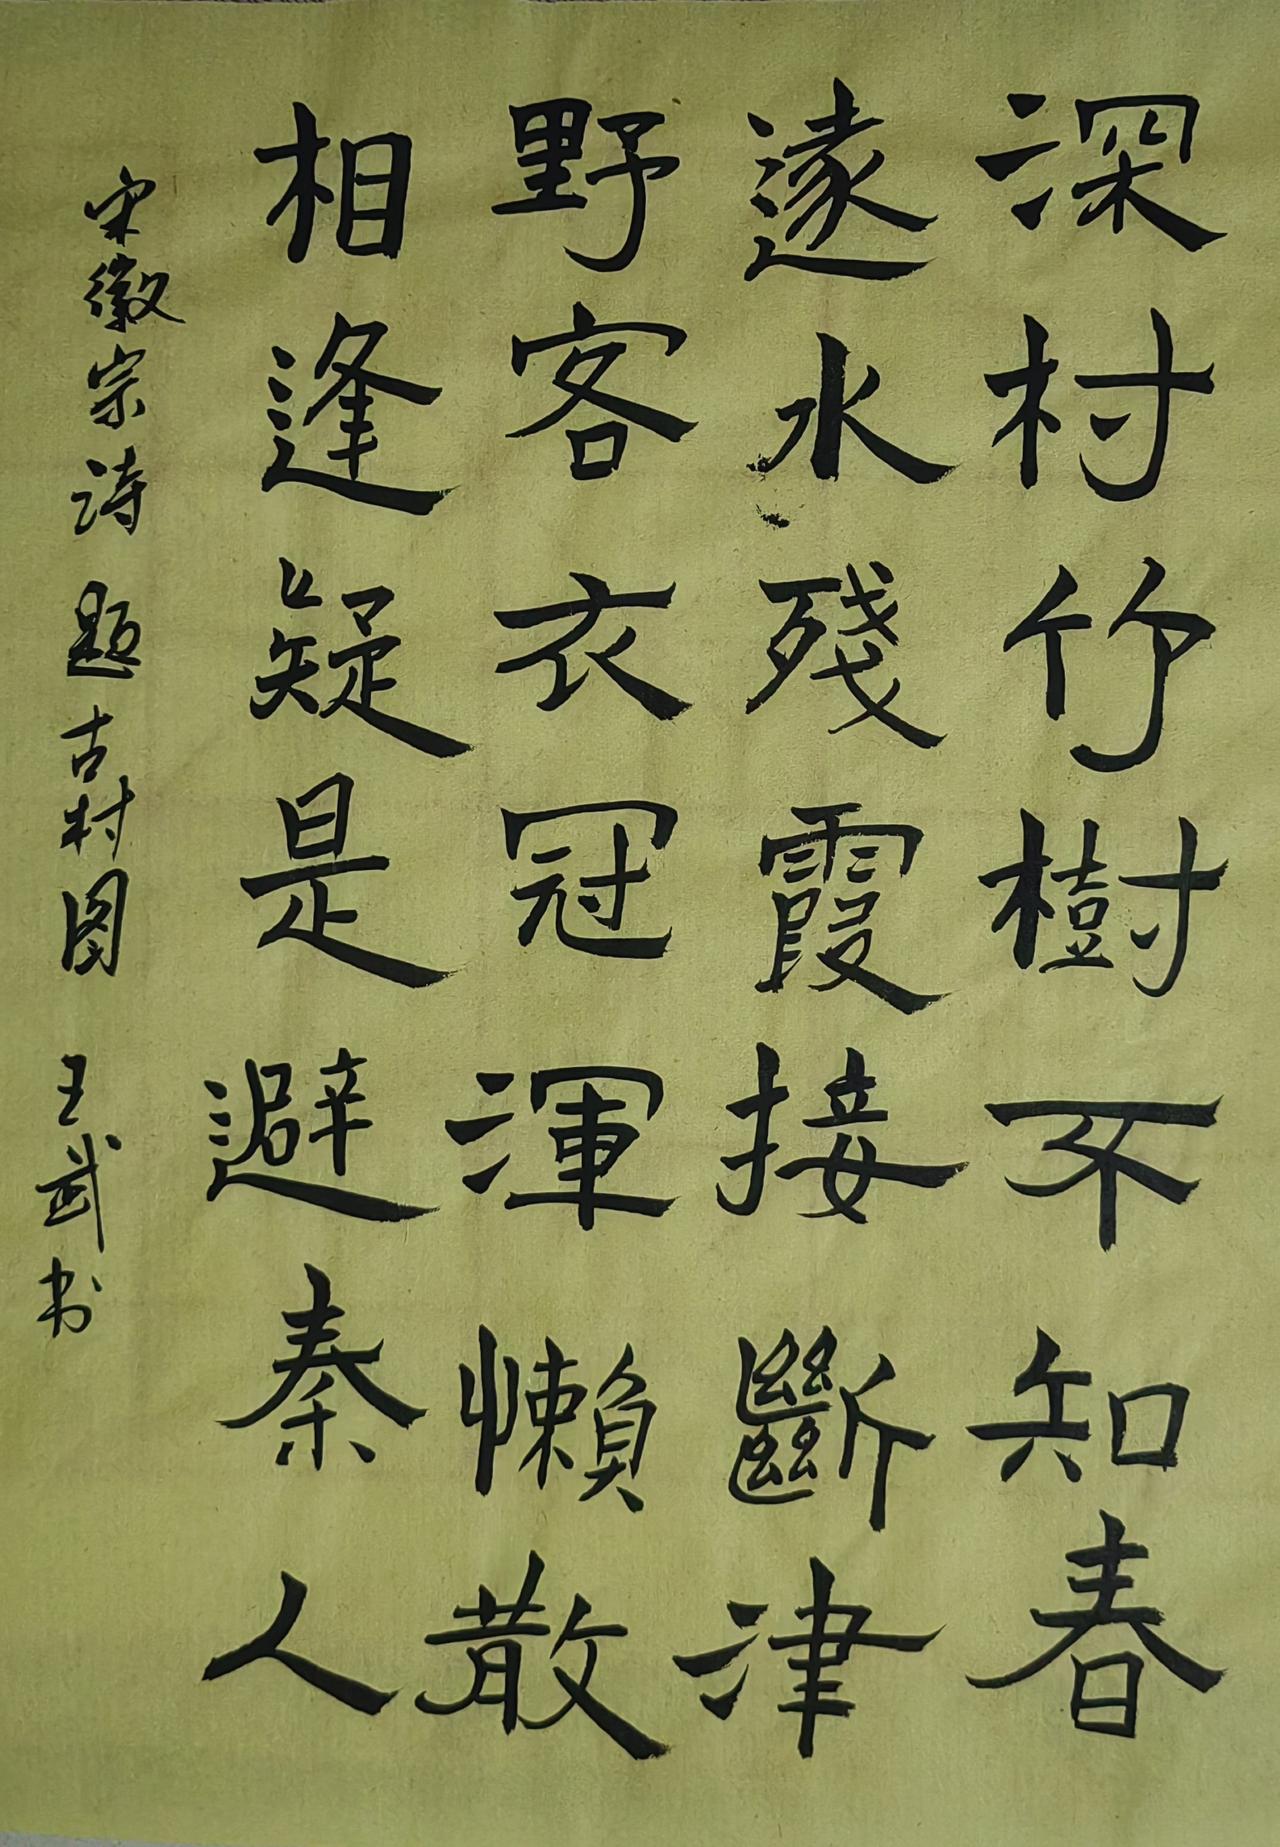 深村竹樹不知春
遠水殘霞接斷津
野客衣冠渾懶散
相逢疑是避秦人
宋徽宗诗 题古村图 王武书